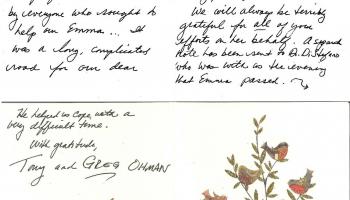 by everyone who sought to
help our Emma... It
was a long, complicated
road for our dear
We will always be
grateful for all of your
efforts on her behalf. A separate
note has been sent to
who was with us the evening
that Emma passed.
He helped us cope with a
very difficult time.
With gratitude,
Tony and GREG OHMAN